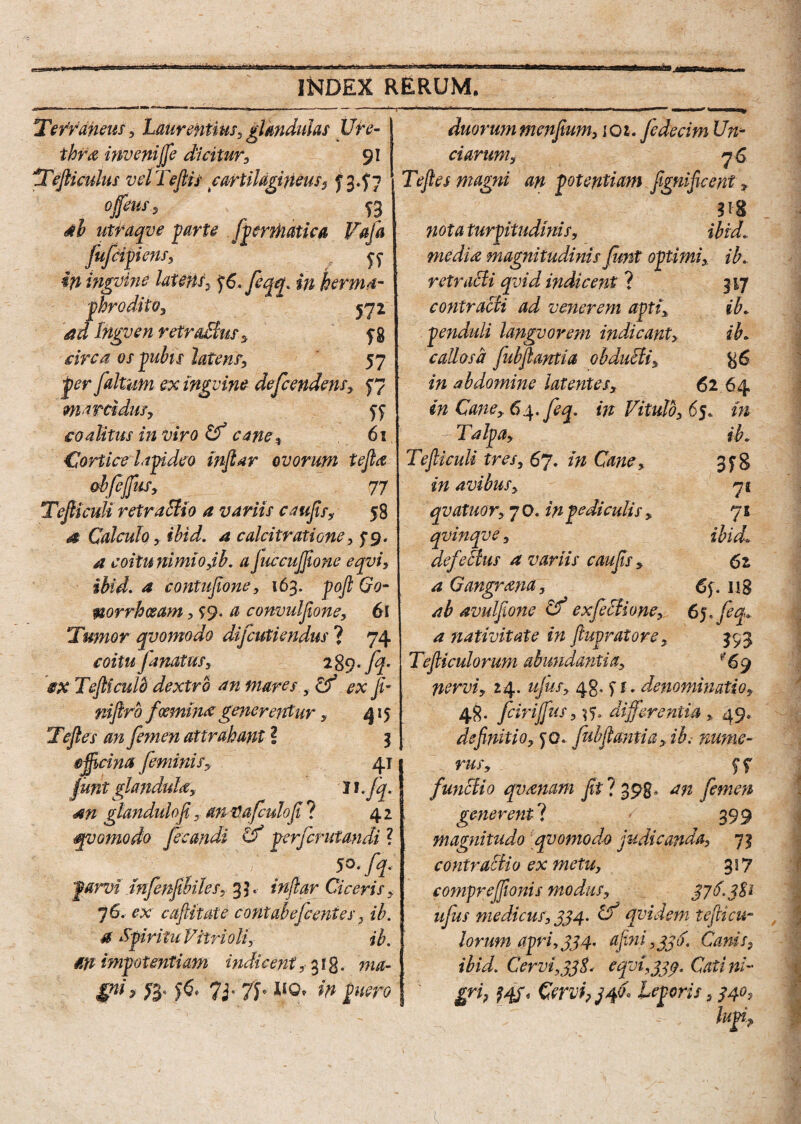 INDEX RERUM.
Terraneus, Laurentius, glandulas Ure-
thræ invenisse dicitur, 91
Testiculus vel Testis cartilagineus, 53.57
osseus, 53
ab utraqve parte spermatica Vasa
suscipiens, 55
in ingvine latens, 56. seqq. in herma-
phrodito, 572
ad Ingven retractus, 58
circa os pubis latens, 57
per saltum ex ingvine descendens, 57
marcidus, 55
coalitus in viro & cane, 61
Cortice lapideo instar ovorum testæ
obsessus, 77
Testiculi retractio a variis causis, 58
a Calculo, ibid. a calcitratione, 59.
a coitu nimio, ib. a succussione eqvi,
ibid. a contusione, 163. post Go-
norrhœam, 59. a convulsione, 61
Tumor qvomodo discutiendus? 74
coitu sanatus, 289. sq.
ex Testiculô dextrô an mares, & ex si-
nistrô fœminæ generentur, 415
Testes an semen attrahant? 3
officina seminis, 41
sunt glandulæ, 11. sq.
an glandulosi, an vasculosi? 42
qvomodo secandi & perscrutandi?
50. sq.
parvi insensibiles, 33. instar Ciceris,
76. ex castitate contabescentes, ib.
a Spiritu Vitrioli, ib.
an impotentiam indicent, 318. ma-
gni, 53. 56. 73. 75. 110. in puero
duorum mensium, 102. sedecim Un-
ciarum, 76
Testes magni an potentiam significent,
318
nota turpitudinis, ibid.
mediæ magnitudinis sunt optimi, ib.
retracti qvid indicent? 317
contracti ad venerem apti, ib.
penduli langvorem indicant, ib.
callosâ substantia obducti, 86
in abdomine latentes, 62 64
in Cane, 64. seq. in Vitulô, 65. in
Talpa, ib.
Testiculi tres, 67. in Cane, 358
in avibus, 71
qvatuor, 70. in pediculis, 71
qvinqve, ibid.
defectus a variis causis, 62
a Gangræna, 65. 118
ab avulsione & exsectione, 65. seq.
a nativitate in stupratore, 393
Testiculorum abundantia, 69
nervi, 24. usus, 48. 51. denominatio,
48. scirissus, 35. differentia, 49.
definitio, 50. substantia, ib. nume-
rus, 55
functio qvænam sit? 398. an semen
generent? 399
magnitudo qvomodo judicanda, 73
contractio ex metu, 317
compressionis modus, 376.381
usus medicus, 334. & qvidem testicu-
lorum apri, 334. asini, 336. Canis,
ibid. Cervi, 338. eqvi, 339. Cati ni-
gri, 345. Cervi, 346. Leporis, 340,
lupi,